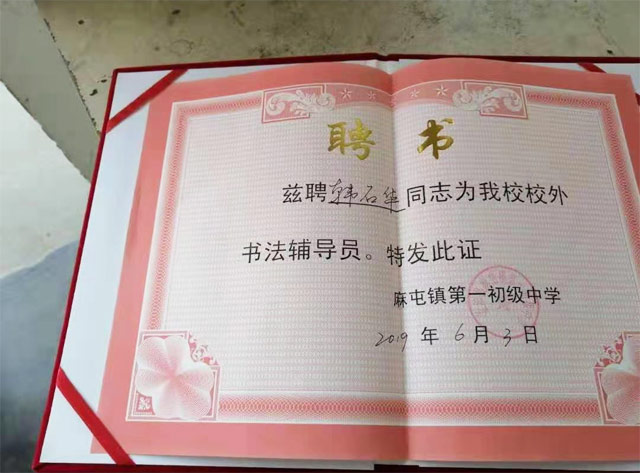 聘书
兹聘韩石华同志为我校校外
书法辅导员。特发此证
麻屯镇第一初级中学
2019年6月3日